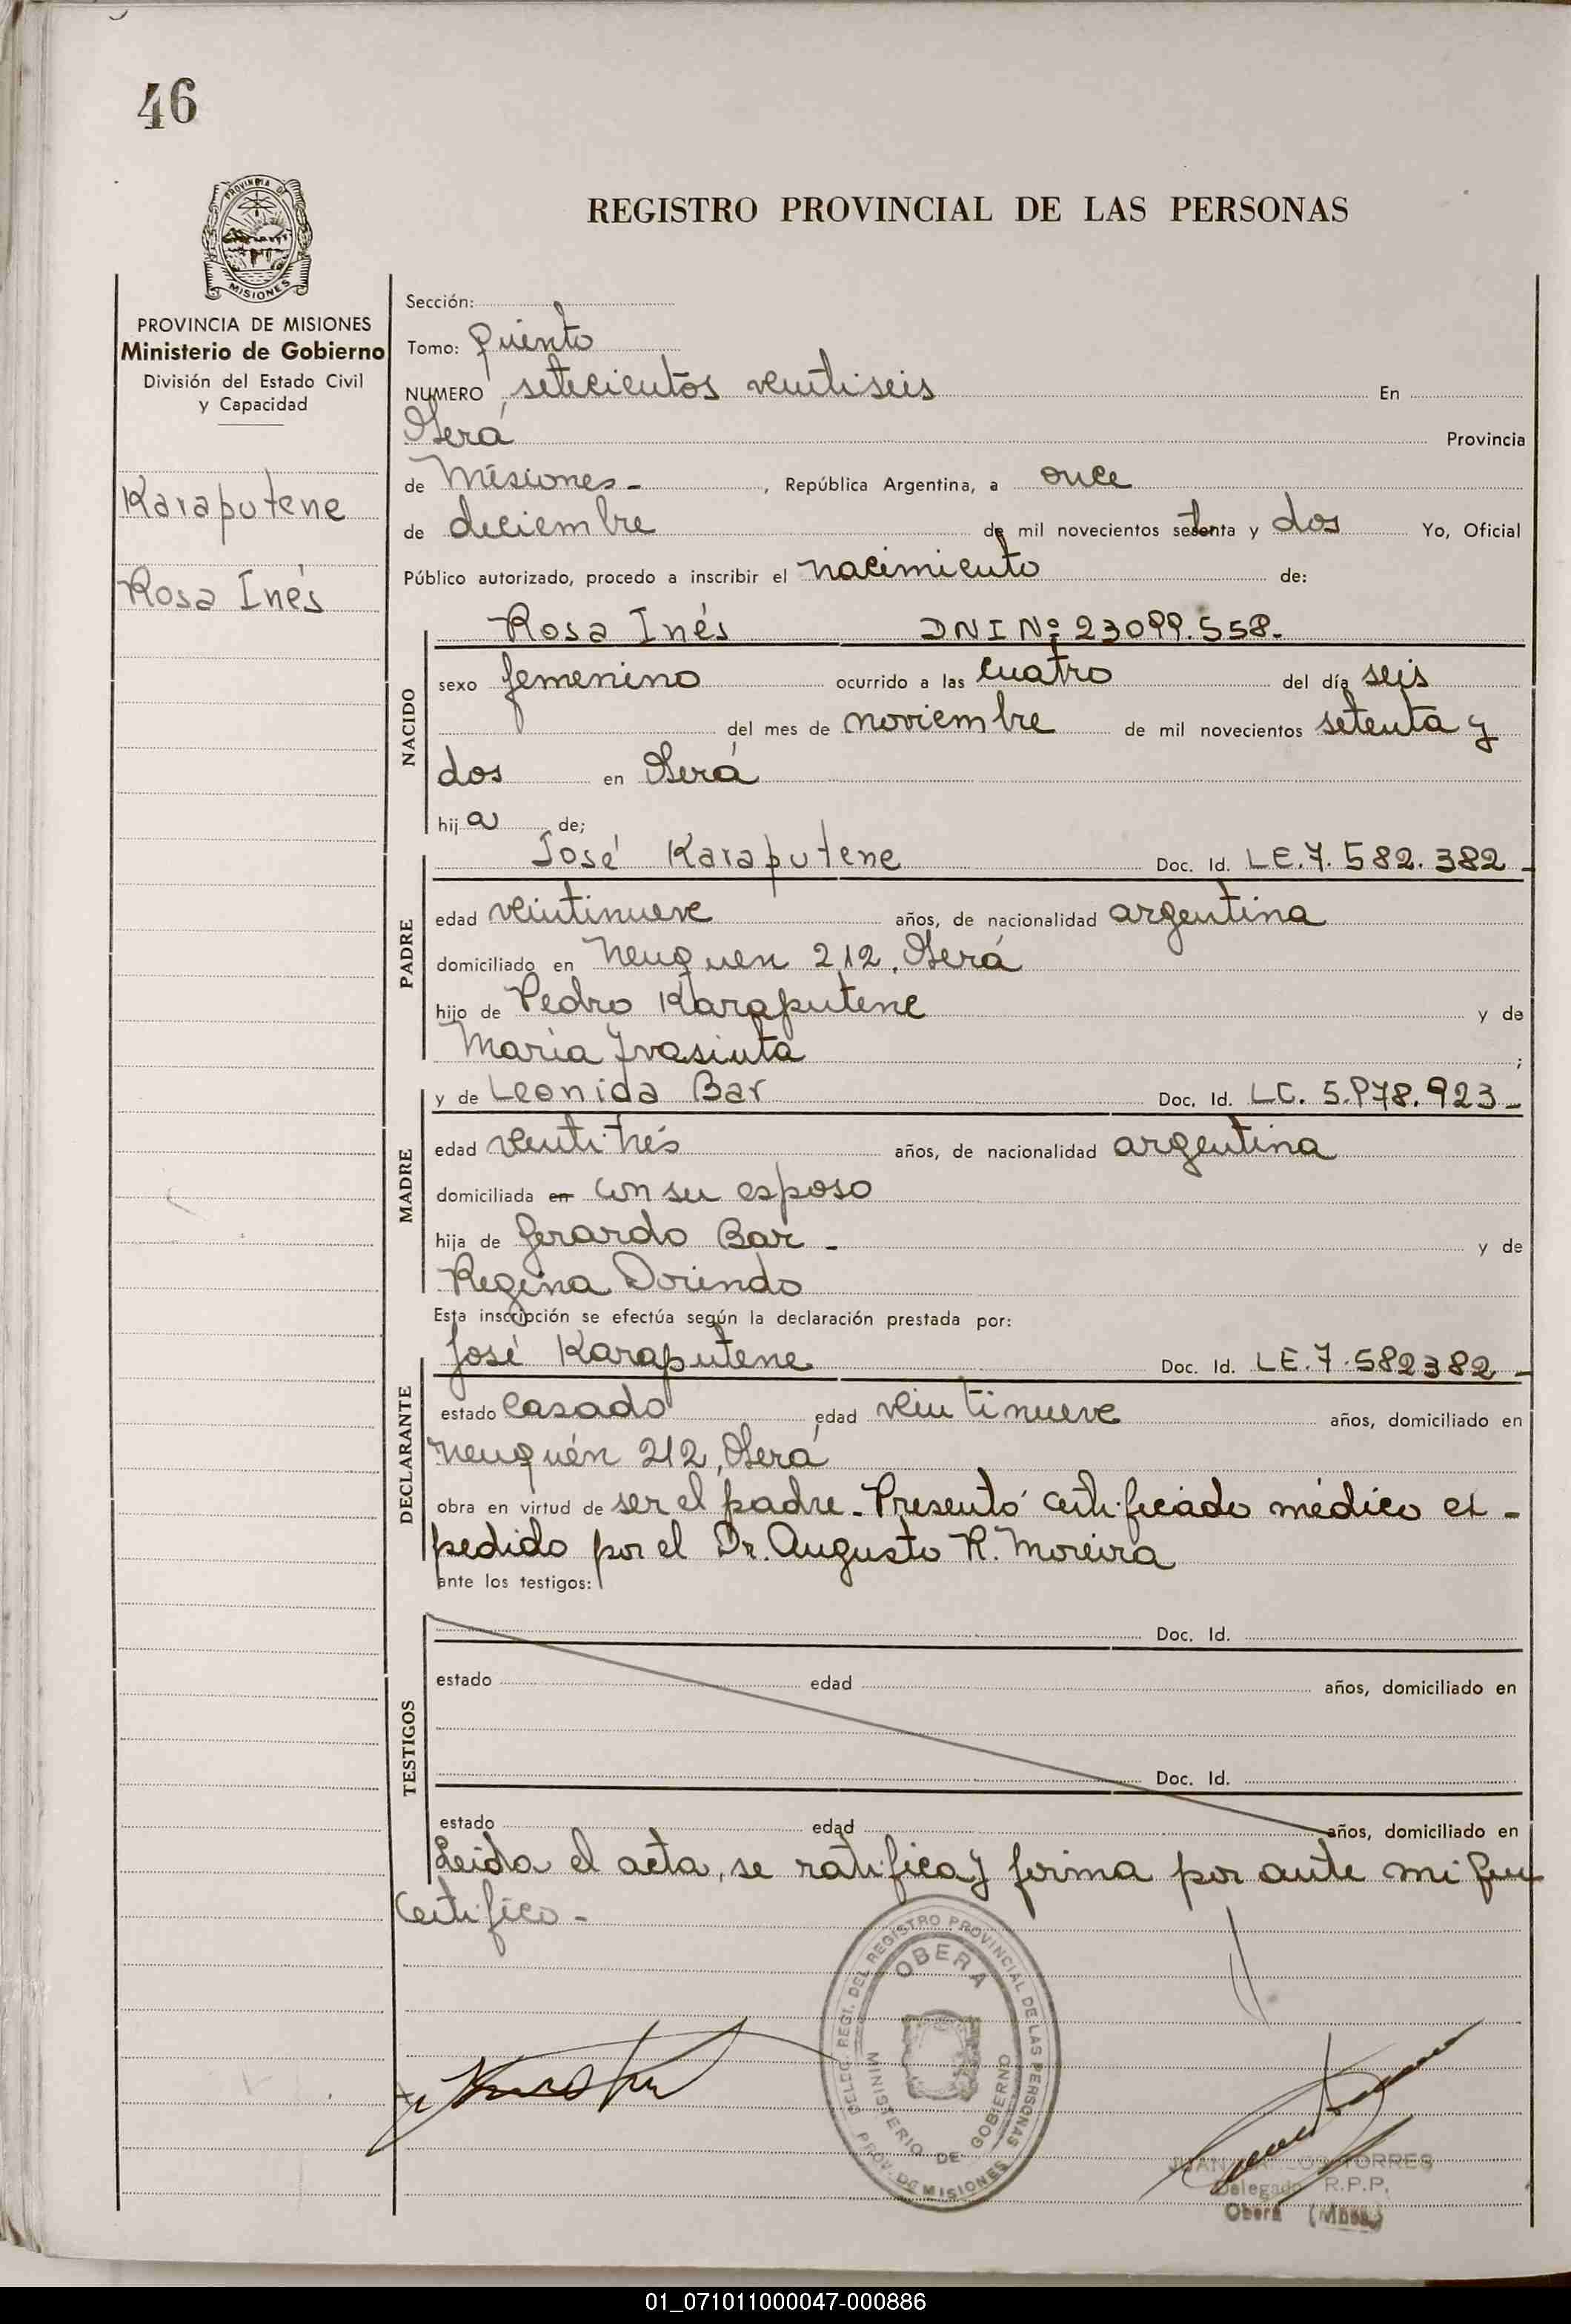 46
PROVINCIA DE
MISIONES
REGISTRO PROVINCIAL DE LAS PERSONAS
PROVINCIA DE MISIONES
Ministerio de Gobierno
División del Estado Civil
y Capacidad
Karaputene
Rosa Inés
Sección:
Tomo: quinto
NUMERO setecientos veintiseis En
Oberá Provincia
de Misiones - , República Argentina, a once
de deciembre de mil novecientos setenta y dos Yo, Oficial
Público autorizado, procedo a inscribir el nacimiento de:
Rosa Inés DNI Nº 23099.558.
NACIDO
sexo femenino ocurrido a las cuatro del día seis
del mes de noviembre de mil novecientos setenta y
dos en Oberá
hij a de;
José Karaputene Doc. Id. L.E. 7. 582. 382 -
PADRE
edad veintinueve años, de nacionalidad argentina
domiciliado en Neuquen 212, Oberá
hijo de Pedro Karaputene y de
Maria Ivasiuta ;
y de Leonida Bar Doc. Id. LC. 5.978.923 -
MADRE
edad veintitrés años, de nacionalidad argentina
domiciliada en con su esposo
hija de Gerardo Bar - y de
Regina Dorindo
Esta inscripción se efectúa según la declaración prestada por:
José Karaputene Doc. Id. LE. 7.582382 -
DECLARANTE
estado casado edad veintinueve años, domiciliado en
Neuquén 212, Oberá
obra en virtud de ser el padre - Presentó certificado médico ex -
pedido por el Dr. Augusto R. Moreira
ante los testigos:
TESTIGOS
Doc. Id.
estado edad años, domiciliado en
Doc. Id.
estado edad años, domiciliado en
Leida el acta, se ratifica y firma por ante mi que
certifico -
DELEG. REGI. DEL REGISTRO PROVINCIAL DE LAS PERSONAS
OBERA
MINISTERIO DE GOBIERNO
PROV. DE MISIONES
JUAN TORRES
Delegado R.P.P.
Oberá (Mnes.)
01_071011000047-000886